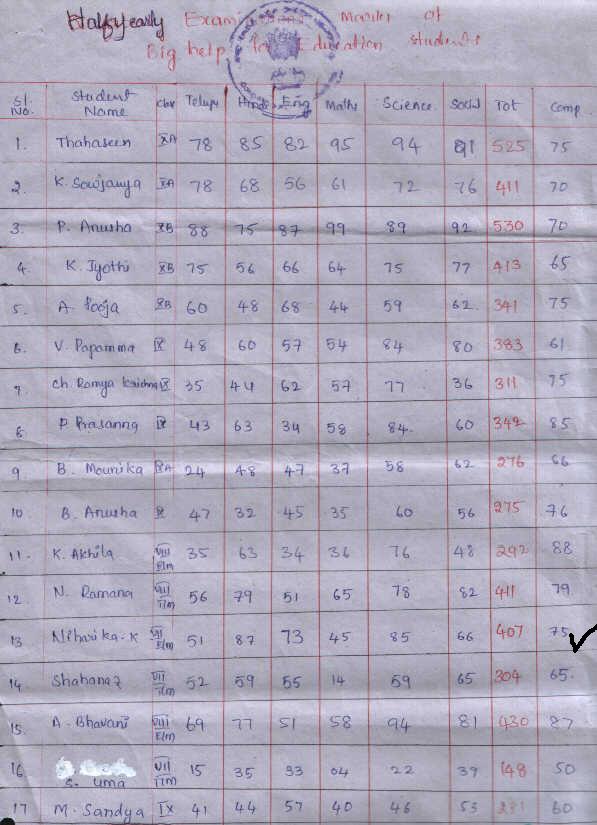 Halfyearly Examinations Marks of
Big help for Education students
Sl. No. Student Name Clas Telugu Hindi Eng Maths Science Social Tot Comp
1. Thahaseen XA 78 85 82 95 94 91 525 75
2. K. Sowjanya XA 78 68 56 61 72 76 411 70
3. P. Anusha XB 88 75 87 99 89 92 530 70
4. K. Jyothi XB 75 56 66 64 75 77 413 65
5. A. Pooja XB 60 48 68 44 59 62 341 75
6. V. Papamma IX 48 60 57 54 84 80 383 61
7. Ch. Ramya Krishna IX 35 44 62 57 77 36 311 75
8 P Prasanna IX 43 63 34 58 84 60 342 85
9 B. Mounika IXA 24 48 47 37 58 62 276 66
10. B. Anusha IX 47 32 45 35 60 56 275 76
11. K. Akhila VIII E/m 35 63 34 36 76 48 292 88
12. N. Ramana VIII T/m 56 79 51 65 78 82 411 79
13 Niharika. K VII E/m 51 87 73 45 85 66 407 75
14 Shahanaz VII T/m 52 59 55 14 59 65 304 65.
15. A. Bhavani VIII E/m 69 77 51 58 94 81 430 87
16 S. Uma VII T/m 15 35 33 04 22 39 148 50
17 M. Sandya IX 41 44 57 40 46 53 281 60